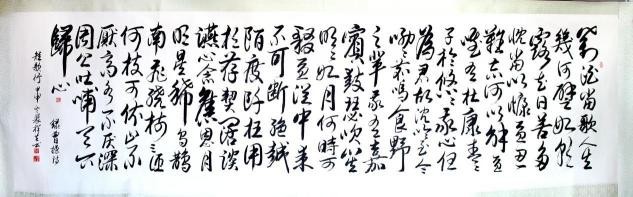 對酒當歌人生
幾何譬如朝
露去日苦多
慨當以慷憂思
難忘何以解憂
唯有杜康青青
子衿悠悠我心但
為君故沉吟至今
呦呦鹿鳴食野
之苹我有嘉
賓鼓瑟吹笙
明明如月何時可
掇憂從中來
不可斷絕越
陌度阡枉用
相存契闊談
讌心念舊恩月
明星稀烏鵲
南飛繞樹三匝
何枝可依山不
厭高水不厭深
周公吐哺天下
歸心 錄曹操詩
短歌行 甲申